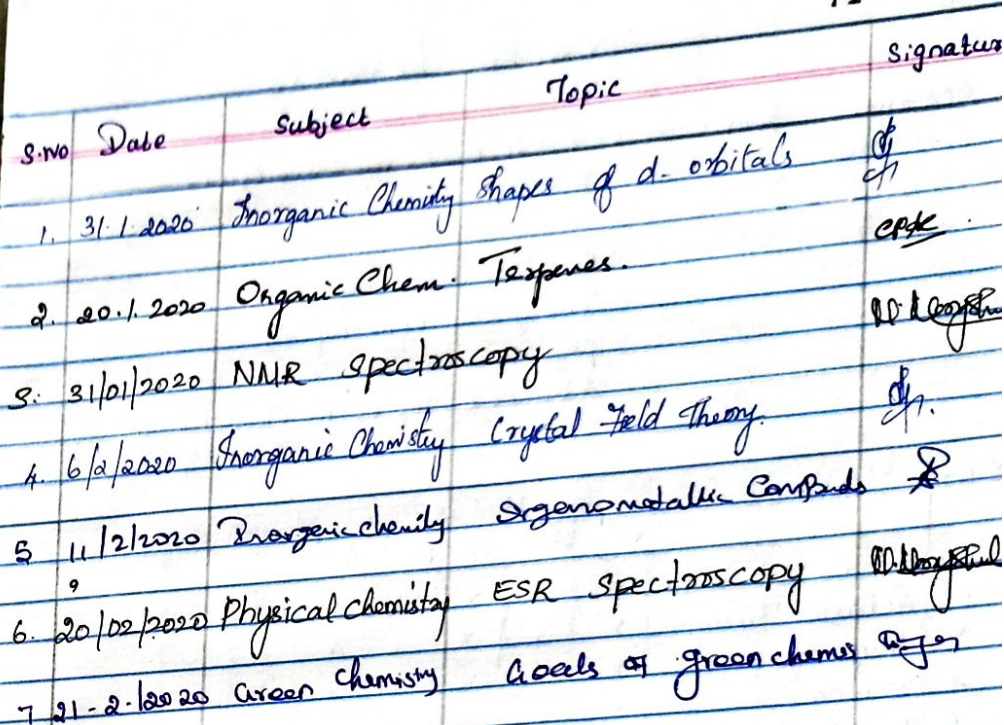 S.No Date Subject Topic Signatur
1. 31.1.2020 Inorganic Chemisty Shapes of d-orbitals
2. 20.1.2020 Organic Chem. Terpenes.
3. 31/01/2020 NMR Spectroscopy
4. 6/2/2020 Inorganic Chemistry Crystal Field Theory.
5 11/2/2020 Inorganic chemisty Organometallic Compounds
6. 20/02/2020 Physical chemistry ESR Spectroscopy
7 21-2-/2020 Green Chemistry Goals of green chemis